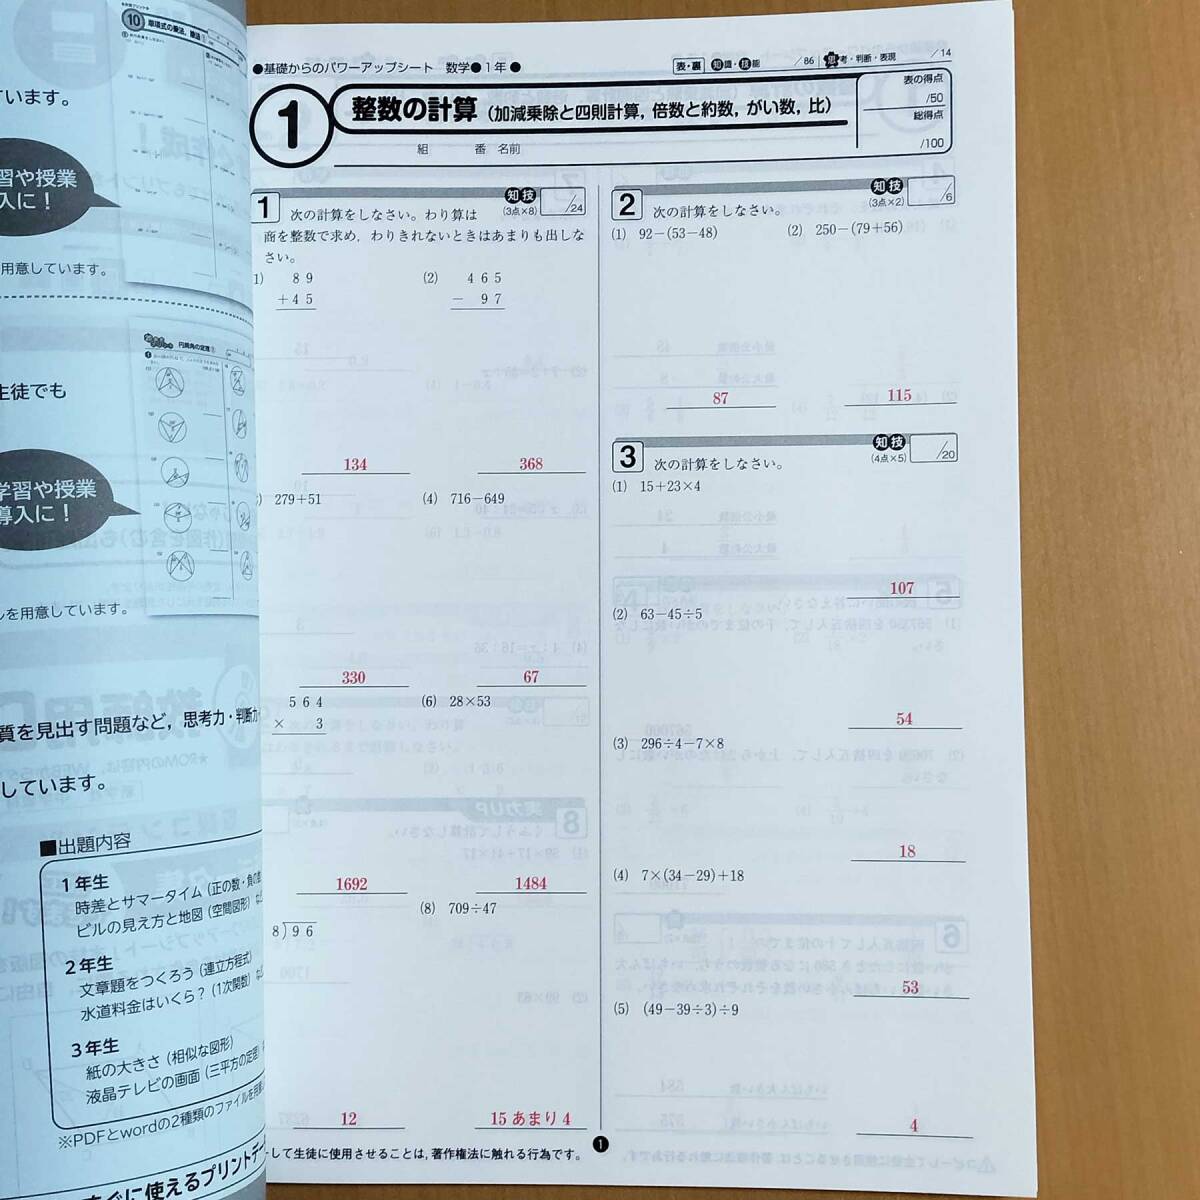 ています。
習や授業
入に！
用意しています。
10 単項式の乗法，除法 1
円周角の定理
生徒でも
学習や授業
導入に！
ルを用意しています。
質を見出す問題など，思考力・判断力・
しています。
■出題内容
1年生
時差とサマータイム（正の数・負の数
ビルの見え方と地図（空間図形）な
2年生
文章題をつくろう（連立方程式）
水道料金はいくら？（1次関数）な
3年生
紙の大きさ（相似な図形）
液晶テレビの画面（三平方の定理）
※PDFとwordの2種類のファイルを用意
すぐに使えるプリントデー
●基礎からのパワーアップシート 数学●1年●
表・裏 知識・技能 /86 思考・判断・表現 /14
1 整数の計算（加減乗除と四則計算，倍数と約数，がい数，比）
表の得点 /50
総得点 /100
組 番 名前
1 次の計算をしなさい。わり算は
商を整数で求め，わりきれないときはあまりも出しな
さい。
知技 (3点×8) /24
1) 89
+45
134
(2) 465
− 97
368
) 279+51
330
(4) 716−649
67
564
× 3
1692
(6) 28×53
1484
8)96
12
(8) 709÷47
15 あまり 4
2 次の計算をしなさい。
知技 (3点×2) /6
(1) 92−(53−48)
87
(2) 250−(79+56)
115
3 次の計算をしなさい。
知技 (4点×5) /20
(1) 15+23×4
107
(2) 63−45÷5
54
(3) 296÷4−7×8
18
(4) 7×(34−29)+18
53
(5) (49−39÷3)÷9
4
ーして生徒に使用させることは，著作権法に触れる行為です。
1